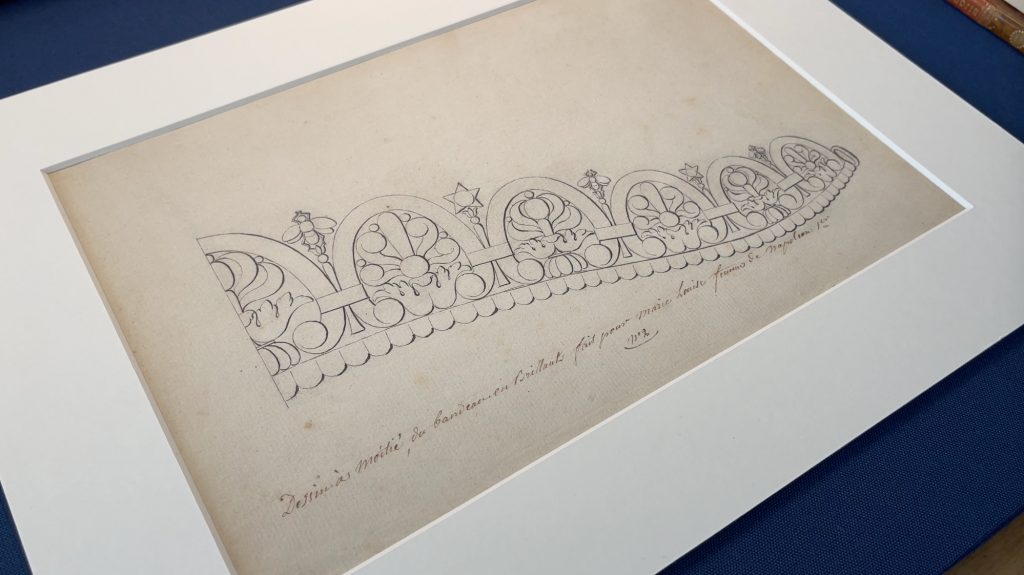 Dessin, à Moitié, du bandeau en Brillants fait pour Marie Louise femme de Napoleon 1er